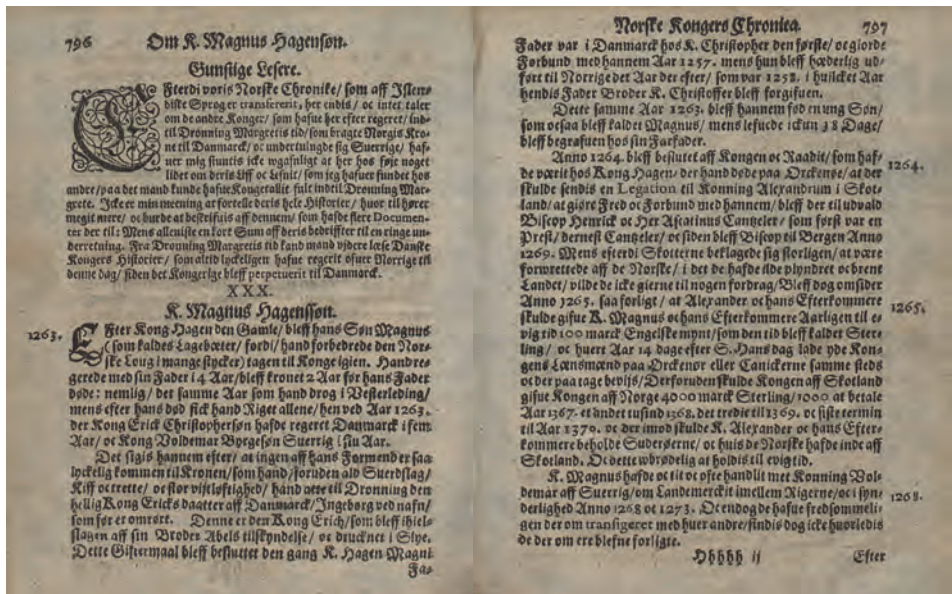 796 Om K. Magnus Hagensøn.
Gunstige Lesere.
EFterdi voris Norske Chronike/ som aff Islen-
diske Sprog er transfererit, her endis/ oc intet taler
om de andre Konger/ som hafue her efter regeret/ ind-
til Dronning Margretis tid/ som bragte Norgis Kro-
ne til Danmarck/ oc undertuingde sig Suerrige/ haf-
uer mig siuntis icke wgafnligt at her hos føje noget
lidet om deris Liff oc Lefnit/ som jeg hafuer fundet hos
andre/ paa det mand kunde hafue Kongetallit fult indtil Dronning Mar-
grete. Icke er min meening at fortelle deris hele Historier/ huor til hører
megit mere/ oc burde at beskrifuis aff dennem/ som hafde flere Documen-
ter der til: Mens alleniste en kort Sum aff deris bedrifter til en ringe un-
derretning. Fra Dronning Margretis tid kand mand vjdere læse Danske
Kongers Historier/ som altid lyckeligen hafue regerit ofuer Norrige til
denne dag/ siden det Kongerige bleff perpetuerit til Danmarck.
XXX.
K. Magnus Hagenssøn.
1263. EFter Kong Hagen den Gamle/ bleff hans Søn Magnus
(som kaldes Lagebøter/ fordi/ hand forbedrede den Nor-
ske Loug i mange stycker) tagen til Konge igien. Hand re-
gerede med sin Fader i 4 Aar/ bleff kronet 2 Aar før hans Fader
døde: nemlig/ det samme Aar som hand drog i Vesterleding/
mens efter hans død fick hand Riget allene/ hen ved Aar 1263.
der Kong Erick Christophersøn hafde regeret Danmarck i fem
Aar/ oc Kong Voldemar Byrgesøn Suerrig i siu Aar.
Det sigis hannem efter/ at ingen aff hans Formend er saa
lyckelig kommen til Kronen/ som hand/ foruden ald Suerdslag/
Kiff oc trette/ oc stor vitløftighed/ hand actte til Dronning den
hellig Kong Ericks daatter aff Danmarck/ Ingeborg ved nafn/
som før er omrørt. Denne er den Kong Erich/ som bleff ihiels
slagen aff sin Broder Abels tilskyndelse/ oc drucknet i Slye.
Dette Giftermaal bleff besluttet den gang K. Hagen Magni
Fa-
Norske Kongers Chronica. 797
Fader var i Danmarck hos K. Christopher den første/ oc giorde
Forbund med hannem Aar 1257. mens hun bleff hæderlig ud-
ført til Norrige det Aar der efter/ som var 1258. i huilcket Aar
hendis Fader Broder K. Christoffer bleff forgifuen.
Dette samme Aar 1263. bleff hannem fød en ung Søn/
som ocsaa bleff kaldet Magnus/ mens lefuede ickun 18 Dage/
bleff begrafuen hos sin Farfader.
Anno 1264. bleff besluttet aff Kongen oc Raadit/ som haf- 1264.
de værit hos Kong Hagen/ der hand døde paa Orckenø/ at der
skulde sendis en Legation til Konning Alexandrum i Skot-
land/ at giøre Fred oc Forbund med hannem/ bleff der til udvald
Biscop Henrick oc Her Ascatinus Cantzeler/ som først var en
Prest/ dernest Cantzeler/ oc siden bleff Biscop til Bergen Anno
1269. Mens efterdi Skotterne beklagede sig storligen/ at være
forwrettede aff de Norske/ i det de hafde ilde plyndret oc brent
Landet/ vilde de icke gierne til nogen fordrag/ Bleff dog omsider
Anno 1265. saa forligt/ at Alexander oc hans Efterkommere 1265.
skulde gifue K. Magnus oc hans Efterkommere Aarligen til e-
vig tid 100 marck Engelske mynt/ som den tid bleff kaldet Ster-
ling/ oc huert Aar 14 dage efter S. Hans dag lade yde Kon-
gens Lænsmænd paa Orckenør eller Canickerne samme steds
oc der paa tage bevijs/ Der foruden skulde Kongen aff Skotland
gifue Kongen aff Norge 4000 marck Sterling/ 1000 at betale
Aar 1367. et andet tusind 1368. det tredie til 1369. oc siste termin
til Aar 1370. oc der imod skulde K. Alexander oc hans Efter-
kommere beholde Suderøerne/ oc huis de Norske hafde inde aff
Skotland. Oc dette wbrødelig at holdis til evig tid.
K. Magnus hafde oc tit oc ofte handlit met Konning Vol-
demar aff Suerrig/ om Landemercket imellem Rigerne/ oc i syn- 1268.
derlighed Anno 1268 oc 1273. Oc endog de hafue fredsommeli-
gen der om transigeret med huer andre/ findis dog icke huorledis
de der om ere blefne forligte.
Hhhhh ij Efter